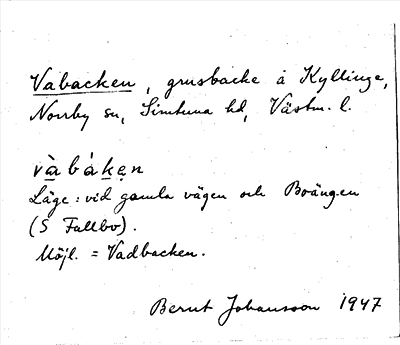 Vabacken, grusbacke å Kyllinge,
Norrby sn, Simtuna hd, Västm. l.
và b á ken
Läge: vid gamla vägen och Boängen
(S Fallbo).
Möjl. = Vadbacken.
Bernt Johansson 1947